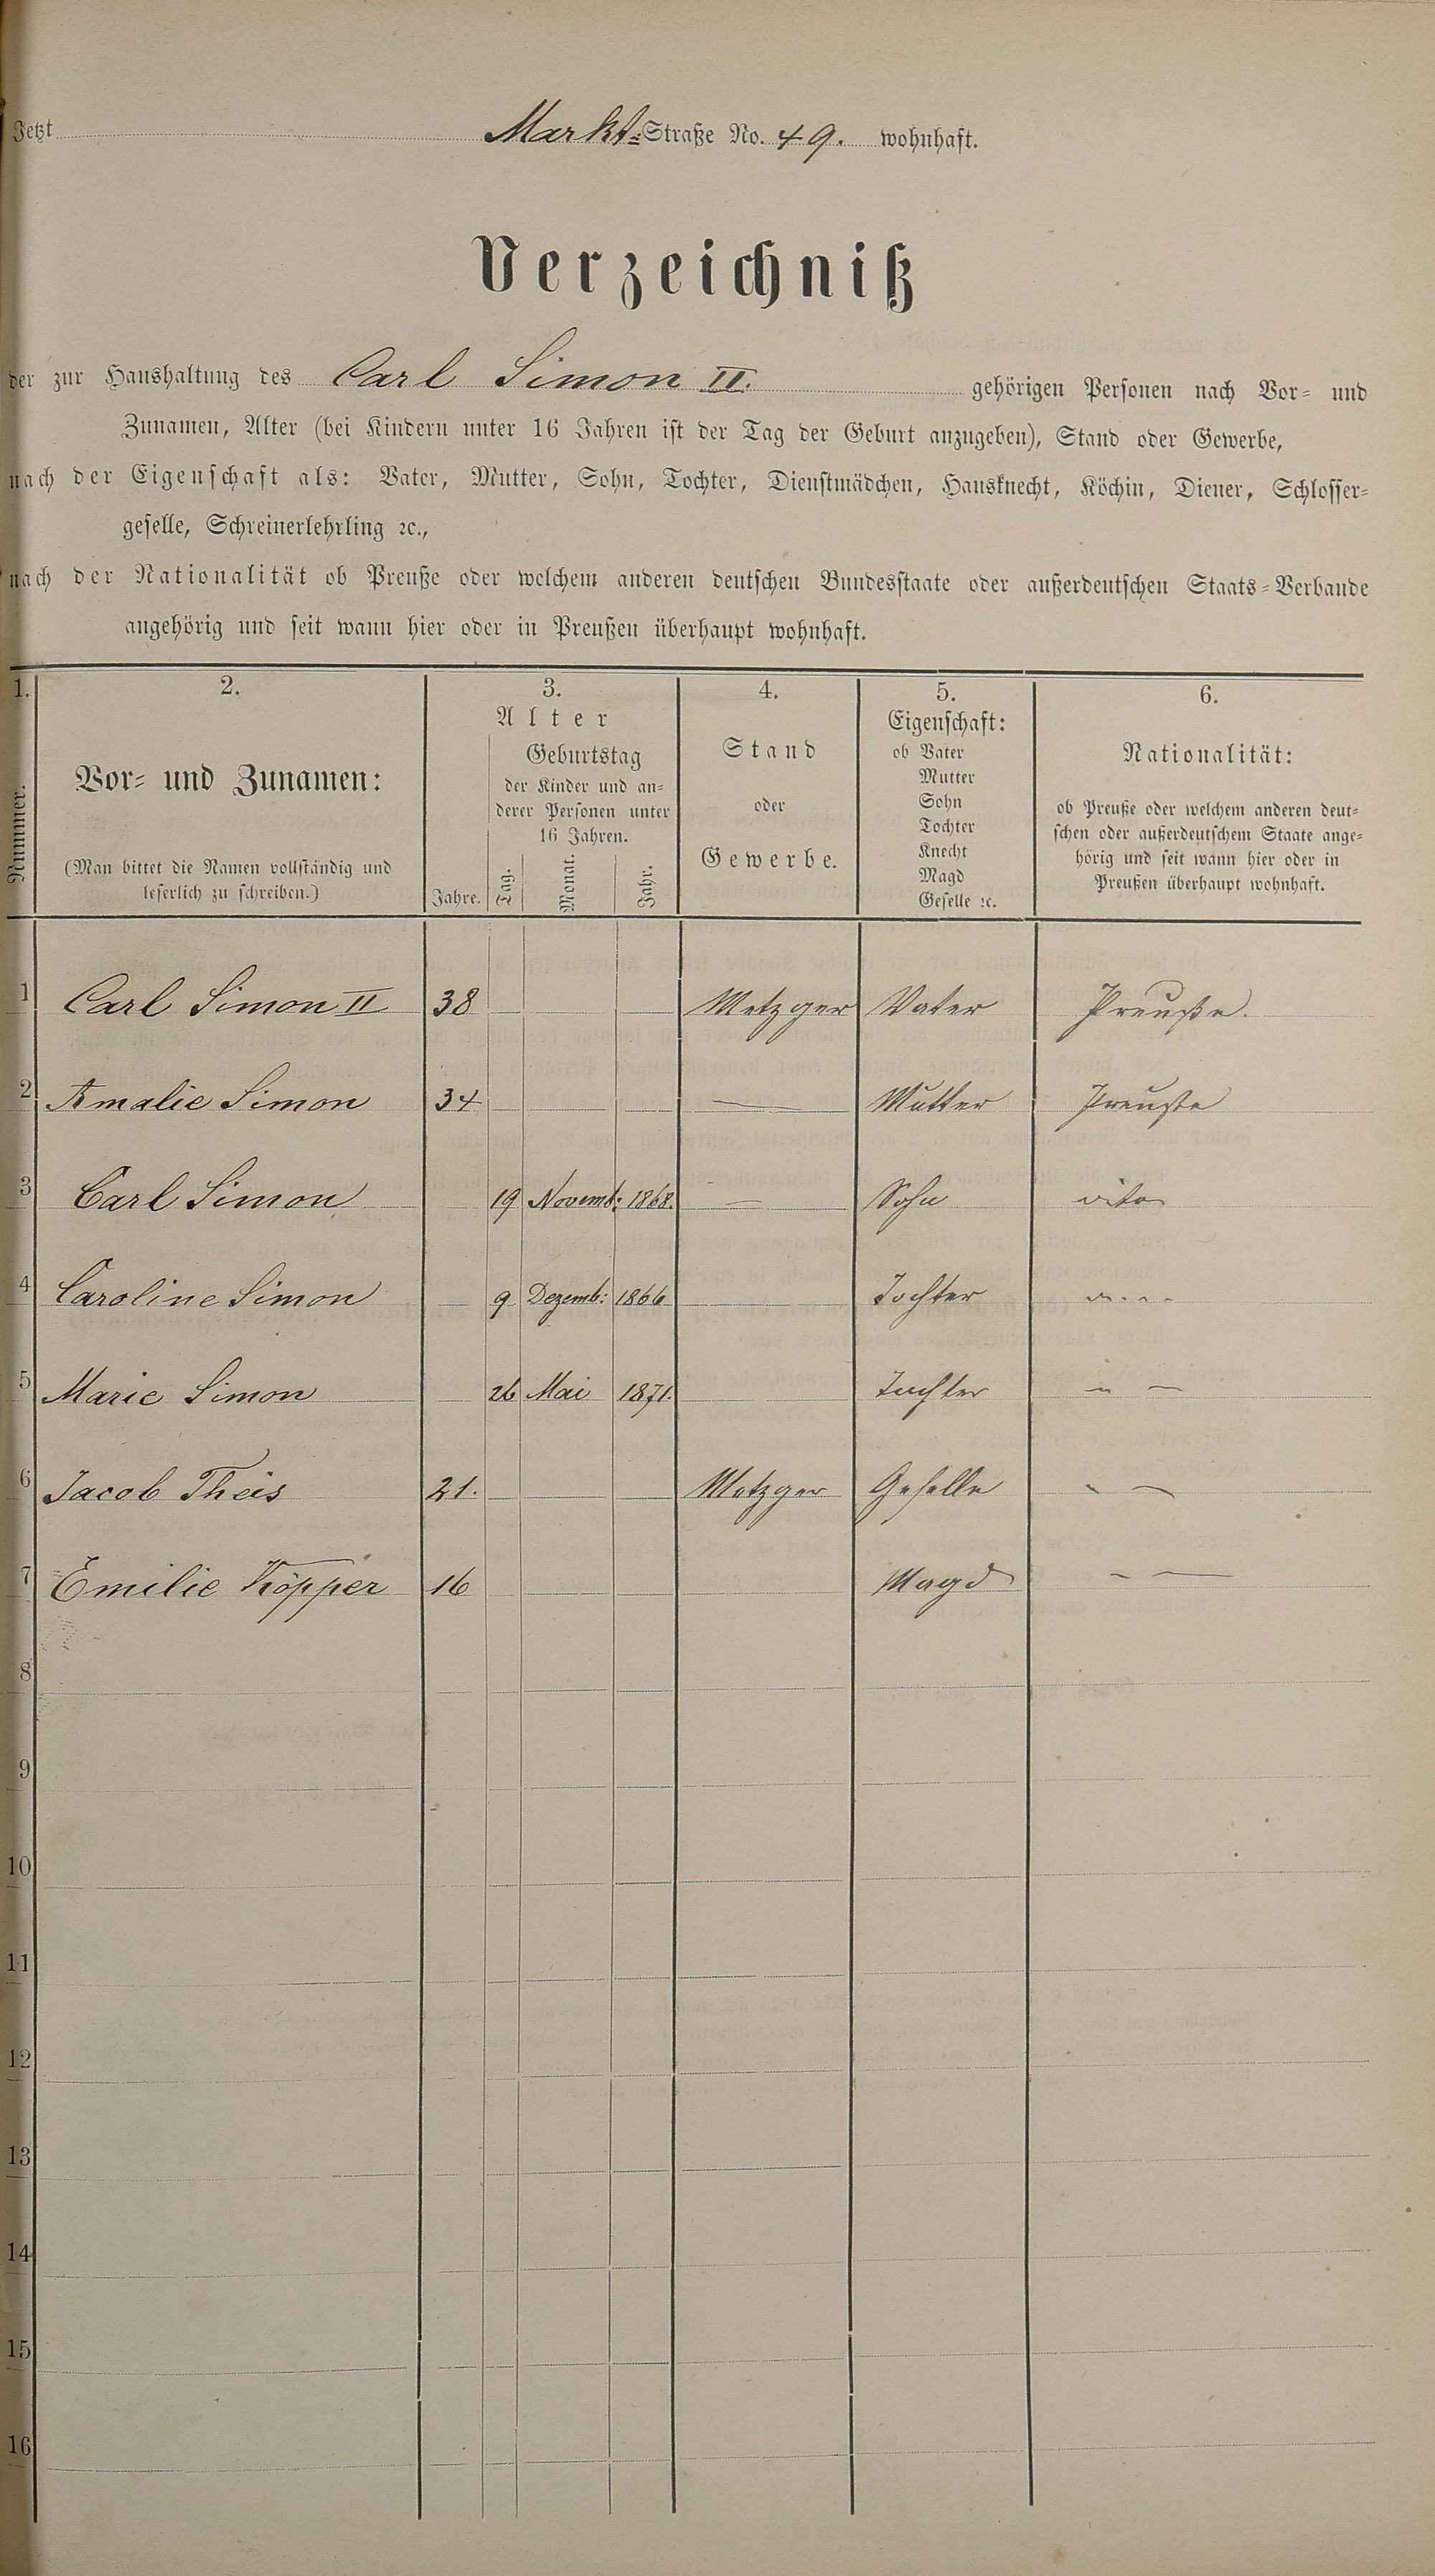 Jetzt Markt-Straße No. 49. wohnhaft.
Verzeichniß
der zur Haushaltung des Carl Simon II. gehörigen Personen nach Vor- und
Zunamen, Alter (bei Kindern unter 16 Jahren ist der Tag der Geburt anzugeben), Stand oder Gewerbe,
nach der Eigenschaft als: Vater, Mutter, Sohn, Tochter, Dienstmädchen, Hausknecht, Köchin, Diener, Schlosser-
geselle, Schreinerlehrling ꝛc.,
nach der Nationalität ob Preuße oder welchem anderen deutschen Bundesstaate oder außerdeutschen Staats-Verbande
angehörig und seit wann hier oder in Preußen überhaupt wohnhaft.
1. 2. 3. 4. 5. 6.
Nummer.
Vor- und Zunamen:
(Man bittet die Namen vollständig und
leserlich zu schreiben.)
Alter
Jahre.
Geburtstag
der Kinder und an-
derer Personen unter
16 Jahren.
Tag. Monat. Jahr.
Stand
oder
Gewerbe.
Eigenschaft:
ob Vater
Mutter
Sohn
Tochter
Knecht
Magd
Geselle ꝛc.
Nationalität:
ob Preuße oder welchem anderen deut-
schen oder außerdeutschem Staate ange-
hörig und seit wann hier oder in
Preußen überhaupt wohnhaft.
1 Carl Simon II 38 Metzger Vater Preuße.
2 Amalie Simon 34 — Mutter Preuße
3 Carl Simon 19 Novemb: 1868. — Sohn
4 Caroline Simon 9 Dezemb: 1866 Tochter
5 Marie Simon 26 Mai 1871. Tochter " —
6 Jacob Theis 21. Metzger Geselle " —
7 Emilie Köpper 16 Magd " —
8
9
10
11
12
13
14
15
16